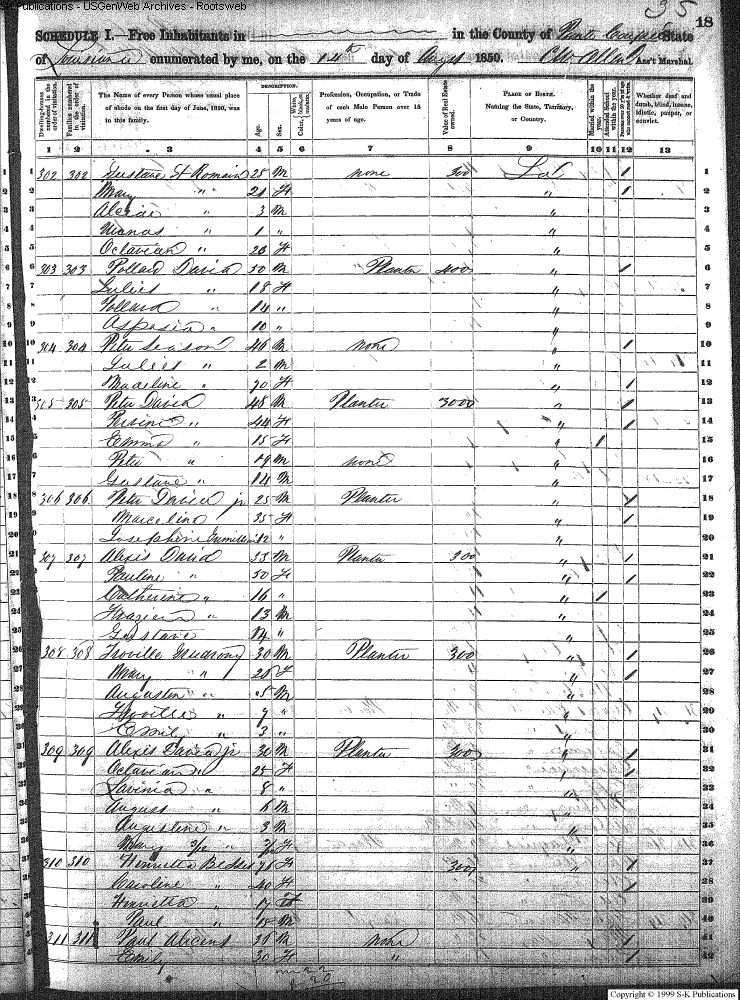 S-K Publications - USGenWeb Archives - Rootsweb
35
18
SCHEDULE I.—Free Inhabitants in in the County of Pointe Coupee State
of Louisiana enumerated by me, on the 14th day of Augst 1850. Ass't Marshal.
Dwelling-houses numbered in the order of visitation.
Families numbered in the order of visitation.
The Name of every Person whose usual place of abode on the first day of June, 1850, was in this family.
DESCRIPTION.
Age.
Sex.
Color,
Profession, Occupation, or Trade of each Male Person over 15 years of age.
Value of Real Estate owned.
PLACE OF BIRTH. Naming the State, Territory, or Country.
Married within the year.
Attended School within the year.
Persons over 20 y'rs of age who cannot read & write.
Whether deaf and dumb, blind, insane, idiotic, pauper, or convict.
1 2 3 4 5 6 7 8 9 10 11 12 13
1 302 302 Gustave St Romain 25 M none 300 La / 1
2 Mary " 21 F " / 2
3 Alexis " 3 M " 3
4 " 1 " " 4
5 Octavian " 20 F " 5
6 303 303 Pollard David 50 M Planter 400 " / 6
7 Juliet " 18 F " 7
8 Pollard " 14 " " 8
9 Aspasia " 10 " " 9
10 304 304 Peter 46 M none " / 10
11 " 2 M " 11
12 Madeline " 70 F " / 12
13 305 305 Peter David 48 M Planter 3000 " / 13
14 " 44 F " / 14
15 Emma " 15 F " / 15
16 Peter " 19 M none " 16
17 Gustave " 14 M " 17
18 306 306 Peter David jr 25 M Planter " / 18
19 Marceline 35 F " / 19
20 Josephine 12 " " 20
21 307 307 Alexis David 55 M Planter 300 " / 21
22 Pauline " 50 F " / 22
23 Catherine " 16 " " / 23
24 " 13 M " 24
25 Gustave 14 " " 25
26 308 308 30 M Planter 300 " / 26
27 Mary " 25 F " / 27
28 Augustin " 5 M " 28
29 " 7 " " 29
30 Emily " 3 " " 30
31 309 309 Alexis David jr 30 M Planter 300 " / 31
32 Octavian " 25 F " / 32
33 Lavinia " 8 " " 33
34 August " 6 M " 34
35 Augustine " 3 M " 35
36 Mary 3/12 " 3/12 F " 36
37 310 310 Henrietta 76 F 300 " / 37
38 Caroline " 40 F / 38
39 Henrietta " 17 F 39
40 Paul " 15 M 40
41 311 311 Paul 36 M none / 41
42 Emily 30 F " / 42
Copyright © 1999 S-K Publications